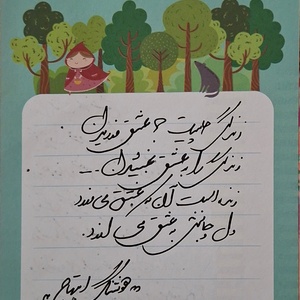 زندگی چیست؟ عشق ورزیدن
زندگی را به عشق بخشیدن...
زنده است آن که عشق می‌ورزد
دل و جانش به عشق می‌ارزد.
"هوشنگ ابتهاج"